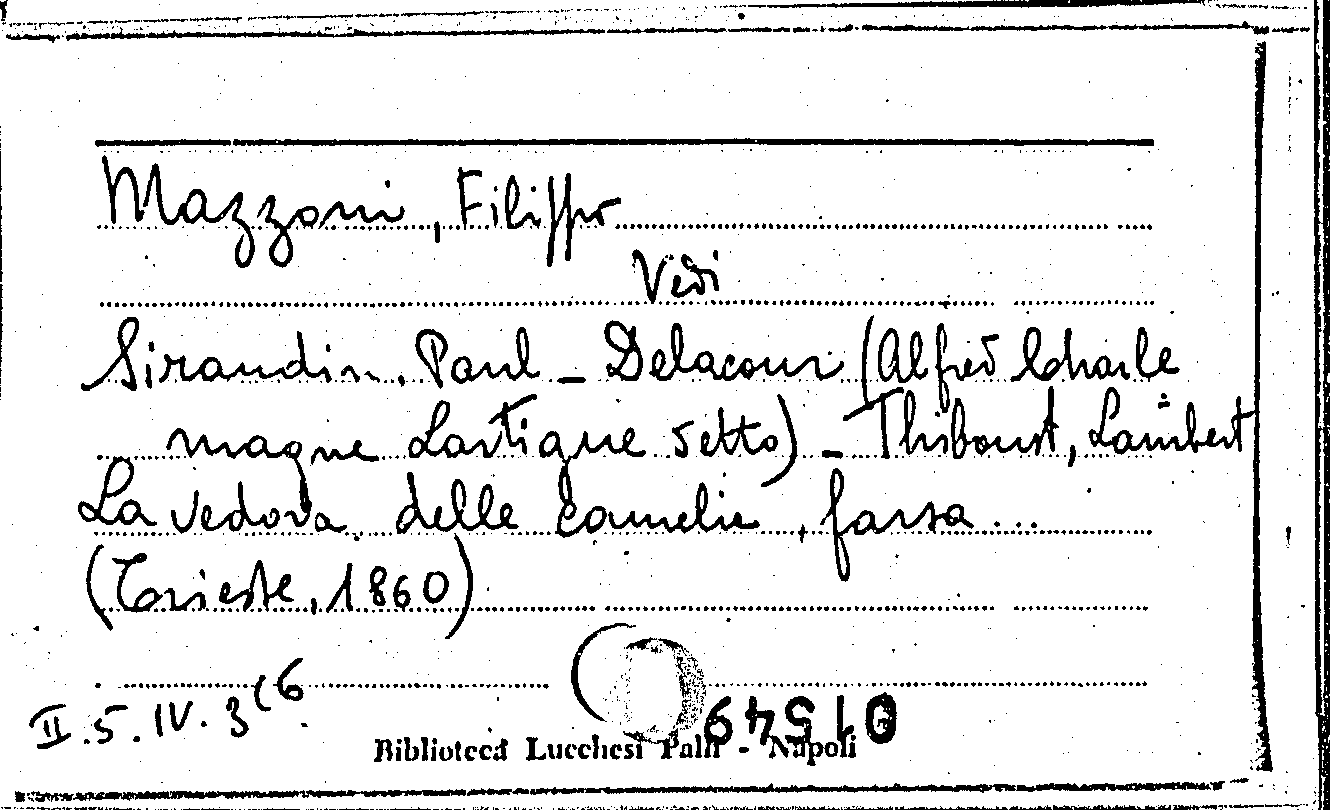 Mazzoni, Filippo
Vedi
Siraudin, Paul - Delacour (Alfred Charle
magne Lartigue detto) - Thiboust, Lambert
La vedova delle camelie, farsa...
(Trieste, 1860)
II.5.IV.3(6
01549
Biblioteca Lucchesi Palli - Napoli